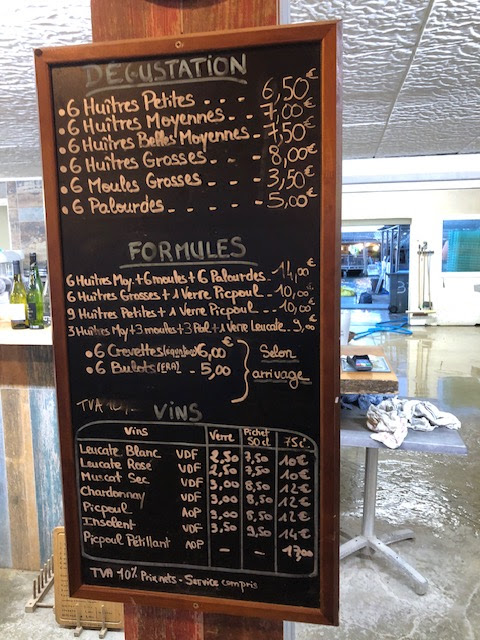 DÉGUSTATION
. 6 Huîtres Petites - - - 6,50€
. 6 Huîtres Moyennes - - - 7,00€
. 6 Huîtres Belles Moyennes - 7,50€
. 6 Huîtres Grosses - - - 8,00€
. 6 Moules Grosses - - - 3,50€
. 6 Palourdes - - - - - 5,00€
FORMULES
6 Huîtres Moy. + 6 moules + 6 Palourdes - 14,00€
6 Huîtres Grosses + 1 Verre Picpoul - 10,00€
9 Huîtres Petites + 1 Verre Picpoul - 10,00€
3 Huîtres Moy + 3 moules + 3 Pal + 1 Verre Leucate - 9,00€
. 6 Crevettes 6,00€
. 6 Bulots - 5,00€
Selon arrivage
TVA 10%
VINS
Vins Verre Pichet 50cl 75cl
Leucate Blanc VDF 2,50 7,50 10€
Leucate Rosé VDF 2,50 7,50 10€
Muscat Sec VDF 3,00 8,50 12€
Chardonnay VDF 3,00 8,50 12€
Picpoul AOP 3,00 8,50 12€
Insolent VDF 3,50 9,50 14€
Picpoul Pétillant AOP - - 17,00
TVA 10% Prix nets - Service compris